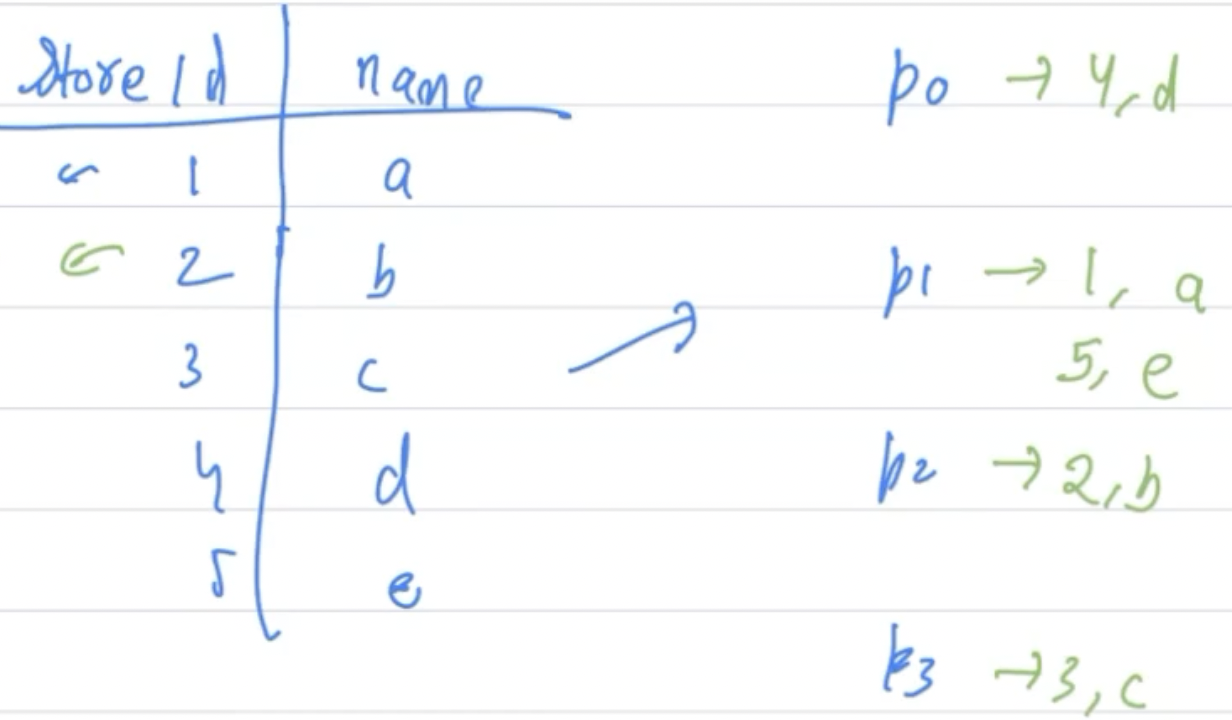 Store Id name
1 a
2 b
3 c
4 d
5 e
p0 → 4, d
p1 → 1, a
5, e
p2 → 2, b
p3 → 3, c